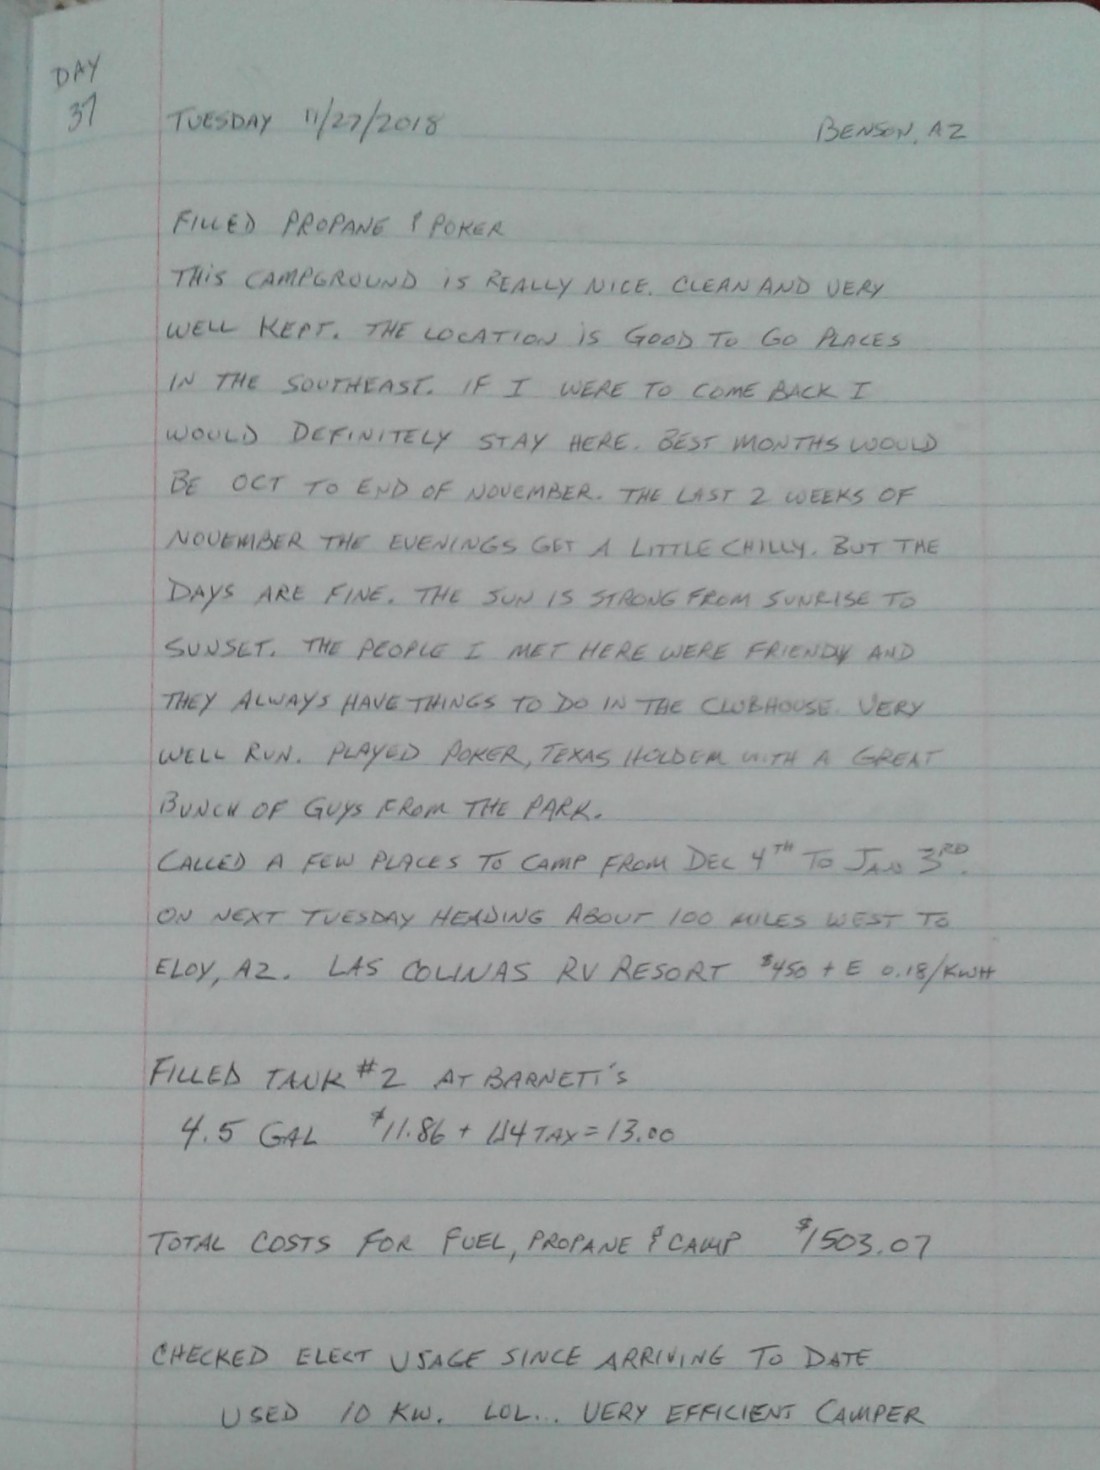 DAY
37
TUESDAY 11/27/2018
BENSON, AZ
FILLED PROPANE & POKER
THIS CAMPGROUND IS REALLY NICE. CLEAN AND VERY
WELL KEPT. THE LOCATION IS GOOD TO GO PLACES
IN THE SOUTHEAST. IF I WERE TO COME BACK I
WOULD DEFINITELY STAY HERE. BEST MONTHS WOULD
BE OCT TO END OF NOVEMBER. THE LAST 2 WEEKS OF
NOVEMBER THE EVENINGS GET A LITTLE CHILLY. BUT THE
DAYS ARE FINE. THE SUN IS STRONG FROM SUNRISE TO
SUNSET. THE PEOPLE I MET HERE WERE FRIENDLY AND
THEY ALWAYS HAVE THINGS TO DO IN THE CLUBHOUSE. VERY
WELL RUN. PLAYED POKER, TEXAS HOLDEM WITH A GREAT
BUNCH OF GUYS FROM THE PARK.
CALLED A FEW PLACES TO CAMP FROM DEC 4TH TO JAN 3RD.
ON NEXT TUESDAY HEADING ABOUT 100 MILES WEST TO
ELOY, AZ. LAS COLINAS RV RESORT $450 + E 0.18/KWH
FILLED TANK #2 AT BARNETT'S
4.5 GAL $11.86 + 1.14 TAX = 13.00
TOTAL COSTS FOR FUEL, PROPANE & CAMP $1503.07
CHECKED ELECT USAGE SINCE ARRIVING TO DATE
USED 10 KW. LOL... VERY EFFICIENT CAMPER